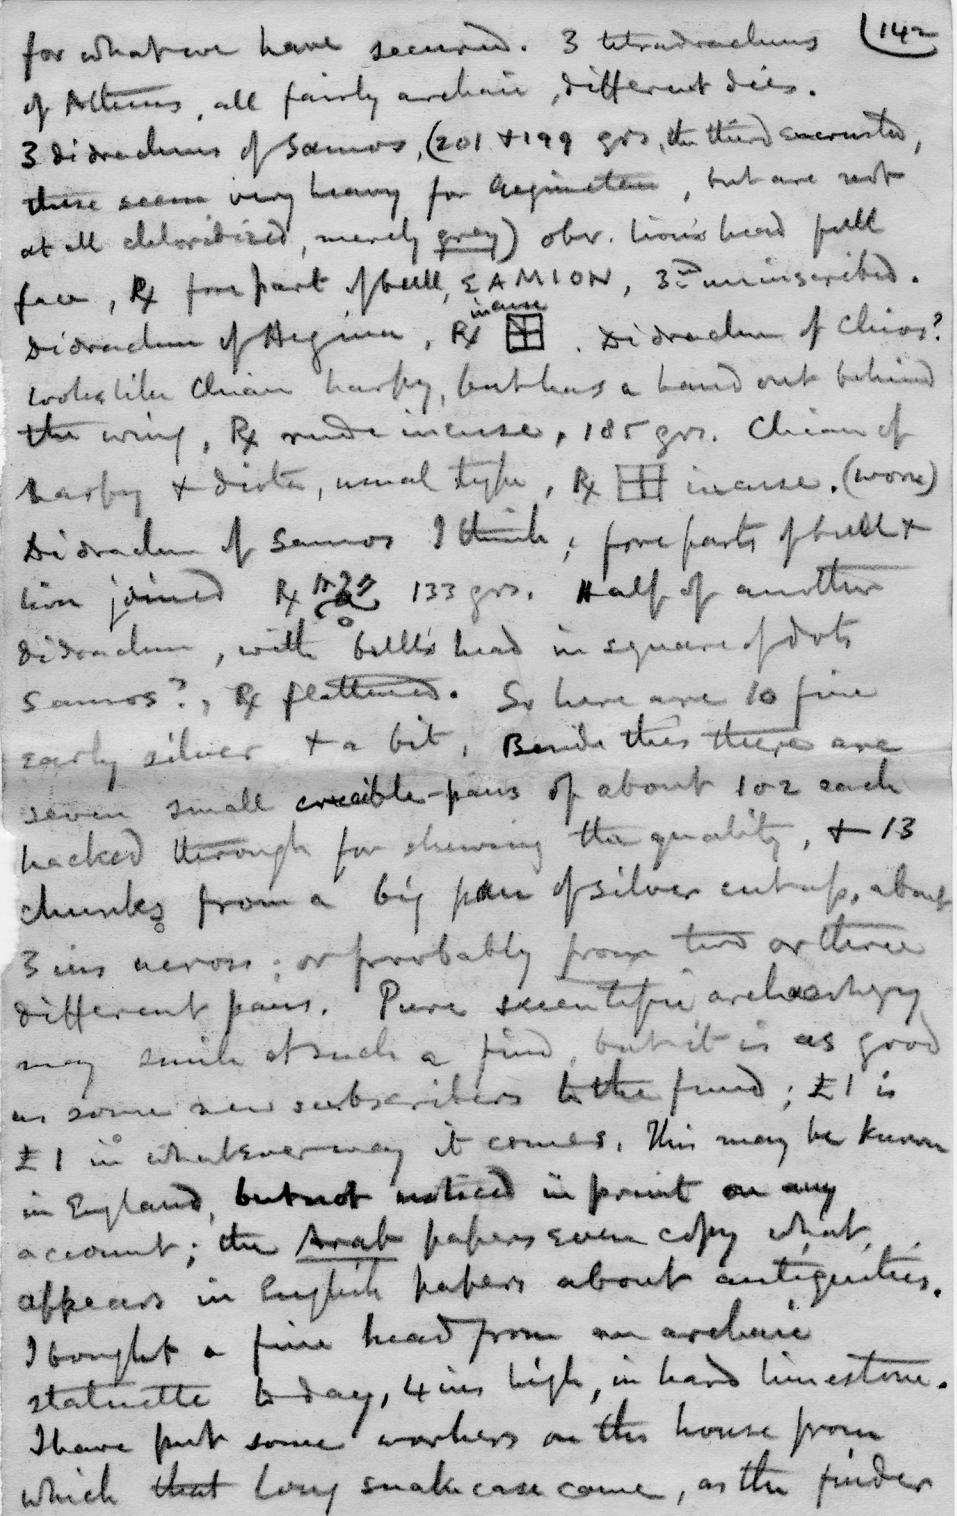 142
for what we have secured. 3 tetradrachms
of Athens, all fairly archaic, different dies.
3 didrachms of Samos, (201 + 199 grs, the third encrusted,
these seem very heavy for Aeginetan, but are not
at all chloridized, merely grey) obv. lion's head full
face, R fore part of bull, ΣAMION, 3rd uninscribed.
Didrachm of Aegina, R incuse. Didrachm of Chios?
looks like Chian harpy, but has a hand out behind
the wing, R rude incuse, 185 grs. Chian of
harpy + diota, usual type, R incuse. (worn)
Didrachm of Samos I think; foreparts of bull +
lion joined R 133 grs. Half of another
didrachm, with bull's head in square of dots
Samos?, R flattened. So here are 10 fine
early silver + a bit. Beside this there are
seven small crucible-pans of about 1 oz each
hacked through for shewing the quality, + 13
chunks from a big pan of silver cut up, about
3 ins across; or probably from two or three
different pans. Pure scientific archaeology
may smile at such a find, but it is as good
as some new subscribers to the fund; £1 is
£1 in whatever way it comes. This may be known
in England, but not noticed in print on any
account; the Arab papers even copy what
appears in English papers about antiquities.
I bought a fine head from an archaic
statuette to day, 4 ins high, in hard limestone.
I have put some workers on the house from
which that long snake case came, as the finder